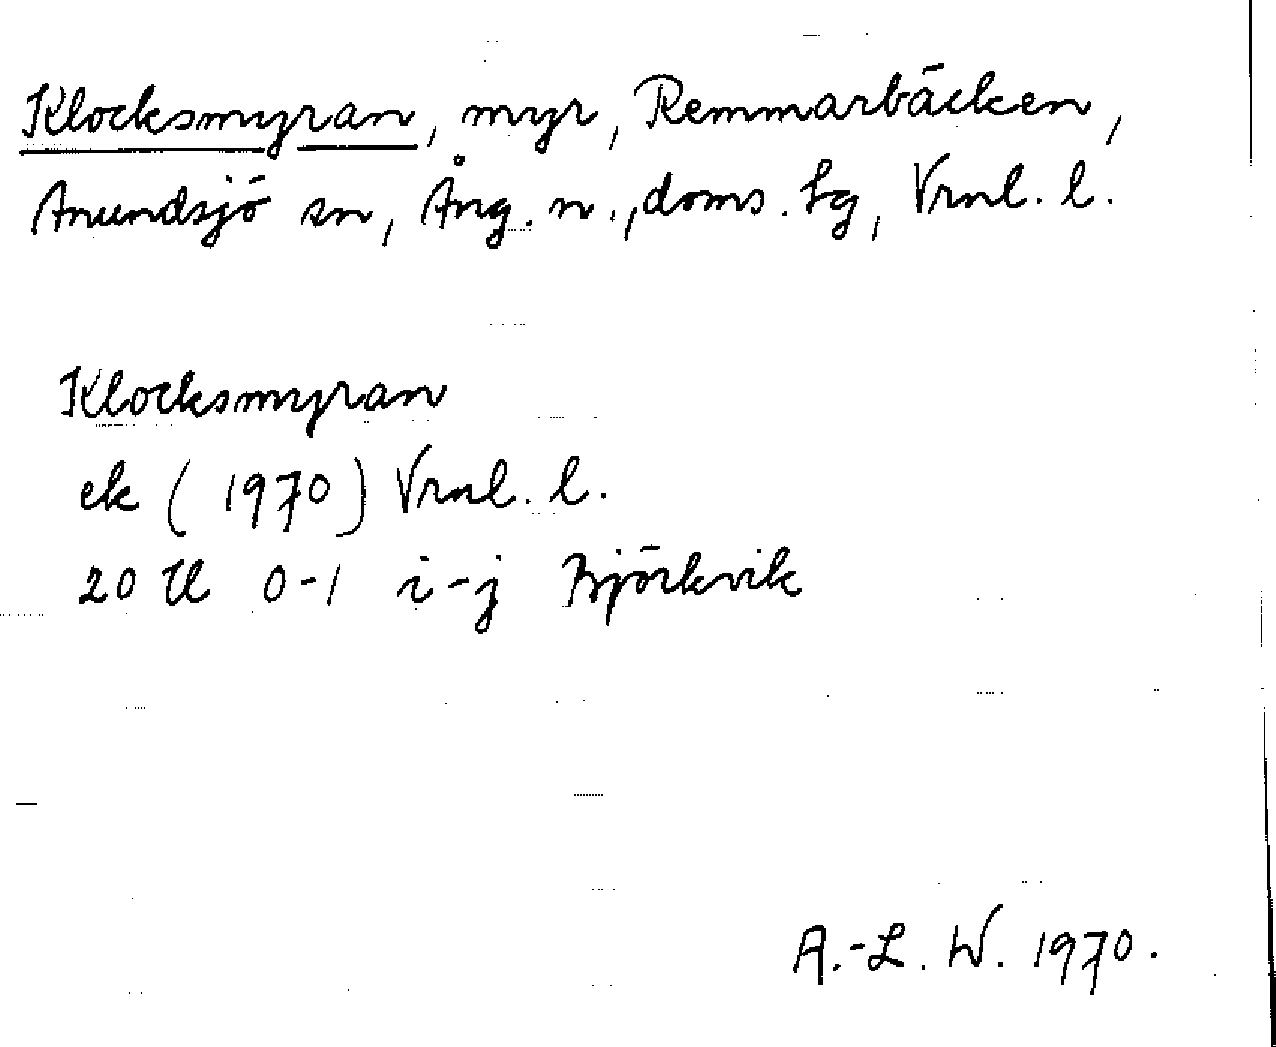 Klocksmyran, myr, Remmarbäcken,
Anundsjö sn, Ång. n., doms. lg, Vrnl. l.
Klocksmyran
ek (1970) Vrnl. l.
20 Il 0-1 i-j Björkvik
A.-L. W. 1970.